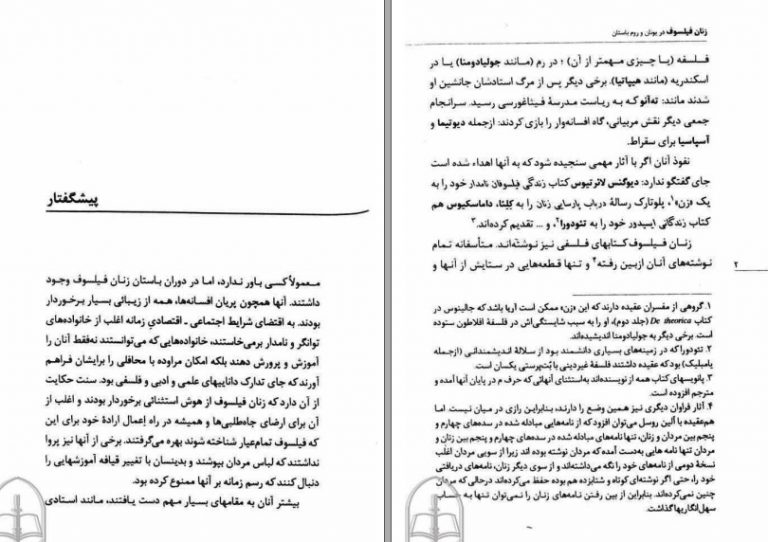 پیشگفتار
معمولاً کسی باور ندارد، اما در دوران باستان زنان فیلسوف وجود
داشتند. آنها همچون پریان افسانه‌ها، همه از زیبائی بسیار برخوردار
بودند. به اقتضای شرایط اجتماعی ـ اقتصادیِ زمانه اغلب از خانواده‌های
توانگر و نامدار برمی‌خاستند، خانواده‌هایی که می‌توانستند نه‌فقط آنان را
آموزش و پرورش دهند بلکه امکان مراوده با محافلی را برایشان فراهم
آورند که جای تدارک داناییهای علمی و ادبی و فلسفی بود. سنت حکایت
از آن دارد که زنان فیلسوف از هوش استثنائی برخوردار بودند و اغلب از
آن برای ارضای جاه‌طلبی‌ها و همیشه در راه اِعمال ارادهٔ خود برای این
که فیلسوف تمام‌عیار شناخته شوند بهره می‌گرفتند. برخی از آنها نیز پروا
نداشتند که لباس مردان بپوشند و بدینسان با تغییر قیافه آموزشهایی را
دنبال کنند که رسم زمانه بر آنها ممنوع کرده بود.
بیشتر آنان به مقامهای بسیار مهم دست یافتند، مانند استادی
زنان فیلسوف در یونان و روم باستان
فلسفه (یا چیزی مهمتر از آن) ؛ در رم (مانند جولیادومنا) یا در
اسکندریه (مانند هیپاتیا). برخی دیگر پس از مرگ استادشان جانشین او
شدند مانند: ته‌آنو که به ریاست مدرسهٔ فیثاغورسی رسید. سرانجام
جمعی دیگر نقش مربیانی، گاه افسانه‌وار را بازی کردند: ازجمله دیوتیما و
آسپاسیا برای سقراط.
نفوذ آنان اگر با آثار مهمی سنجیده شود که به آنها اهداء شده است
جای گفتگو ندارد: دیوگنس لائرتیوس کتاب زندگی فیلسوفان نامدار خود را به
یک «زن»۱، پلوتارک رسالهٔ درباب پارسایی زنان را به کلِئا، داماسکیوس هم
کتاب زندگانی ایسیدور خود را به تئودورا۲، و ... تقدیم کرده‌اند.۳
زنان فیلسوف کتابهای فلسفی نیز نوشته‌اند. متأسفانه تمام
نوشته‌های آنان ازبین رفته۴ و تنها قطعه‌هایی در ستایش از آنها و
۲
۱. گروهی از مفسران عقیده دارند که این «زن» ممکن است آریا باشد که جالینوس در
کتاب De theorica (جلد دوم)، او را به سبب شایستگی‌اش در فلسفهٔ افلاطون ستوده
است. برخی دیگر به جولیادومنا اندیشیده‌اند.
۲. تئودورا که در زمینه‌های بسیاری دانشمند بود از سلالهٔ اندیشمندانی (ازجمله
یامبلیک) بود که عقیده داشتند فلسفهٔ غیردینی با بُت‌پرستی یکسان است.
۳. پانویسهای کتاب همه از نویسنده‌اند به‌استثنای آنهائی که حرف م در پایان آنها آمده و
مترجم افزوده است.
۴. آثار فراوان دیگری نیز همین وضع را دارند، بنابراین رازی در میان نیست. اما
هم‌عقیده با آلین روسل می‌توان افزود که از نامه‌هایی مبادله شده در سده‌های چهارم و
پنجم بین مردان و زنان، تنها نامه‌های مبادله شده در سده‌های چهارم و پنجم بین زنان و
مردان تنها نامه هایی به‌دست آمده که مردان نوشته بوده اند زیرا از سویی مردان اغلب
نسخهٔ دومی از نامه‌های خود را نگه می‌داشته‌اند و از سوی دیگر زنان، نامه‌های دریافتی
خود را، حتی اگر نوشته‌ای کوتاه و شتابزده هم بوده حفظ می‌کرده‌اند درحالی که مردان
چنین نمی‌کرده‌اند. بنابراین از بین رفتن نامه‌های زنان را نمی‌توان تنها به حساب
سهل‌انگاریها گذاشت.